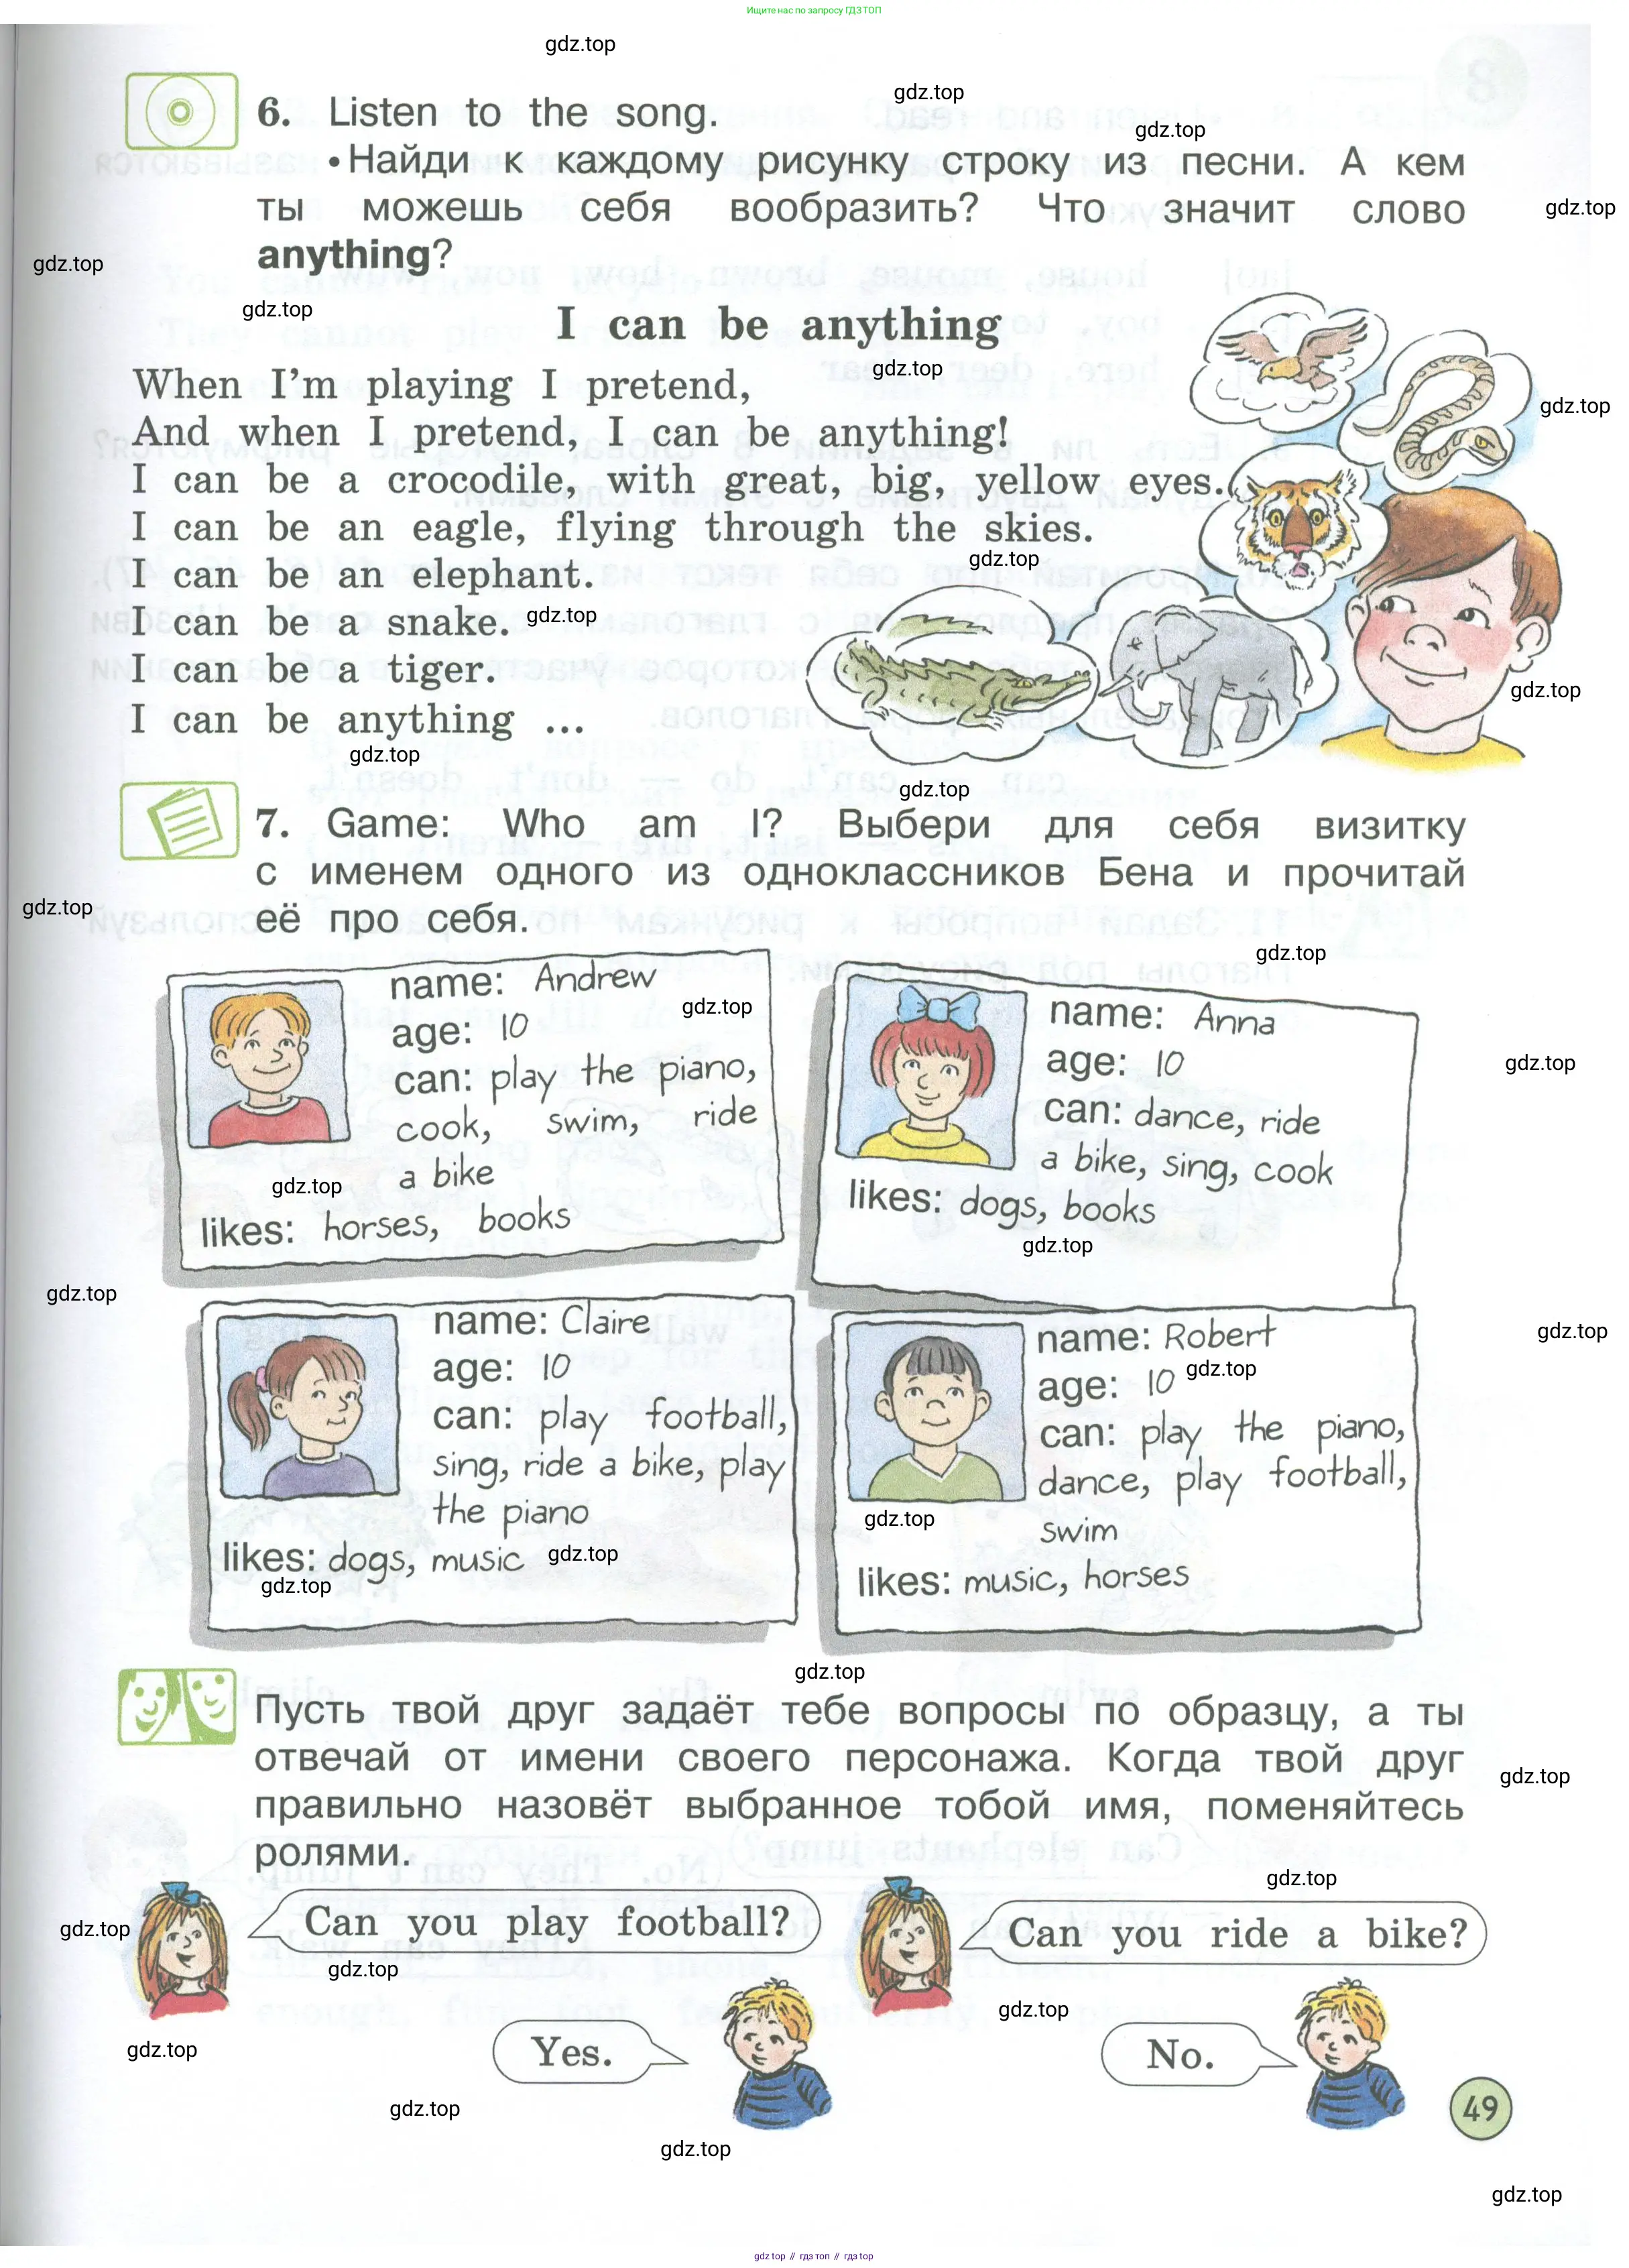 Ищите нас по запросу ГДЗ ТОП
6. Listen to the song.
• Найди к каждому рисунку строку из песни. А кем
ты можешь себя вообразить? Что значит слово
anything?
I can be anything
When I'm playing I pretend,
And when I pretend, I can be anything!
I can be a crocodile, with great, big, yellow eyes.
I can be an eagle, flying through the skies.
I can be an elephant.
I can be a snake.
I can be a tiger.
I can be anything ...
7. Game: Who am I? Выбери для себя визитку
с именем одного из одноклассников Бена и прочитай
её про себя.
name: Andrew
age: 10
can: play the piano,
cook, swim, ride
a bike
likes: horses, books
name: Anna
age: 10
can: dance, ride
a bike, sing, cook
likes: dogs, books
name: Claire
age: 10
can: play football,
sing, ride a bike, play
the piano
likes: dogs, music
name: Robert
age: 10
can: play the piano,
dance, play football,
swim
likes: music, horses
Пусть твой друг задаёт тебе вопросы по образцу, а ты
отвечай от имени своего персонажа. Когда твой друг
правильно назовёт выбранное тобой имя, поменяйтесь
ролями.
Can you play football?
Can you ride a bike?
Yes.
No.
49
gdz top // гдз топ // гдз top